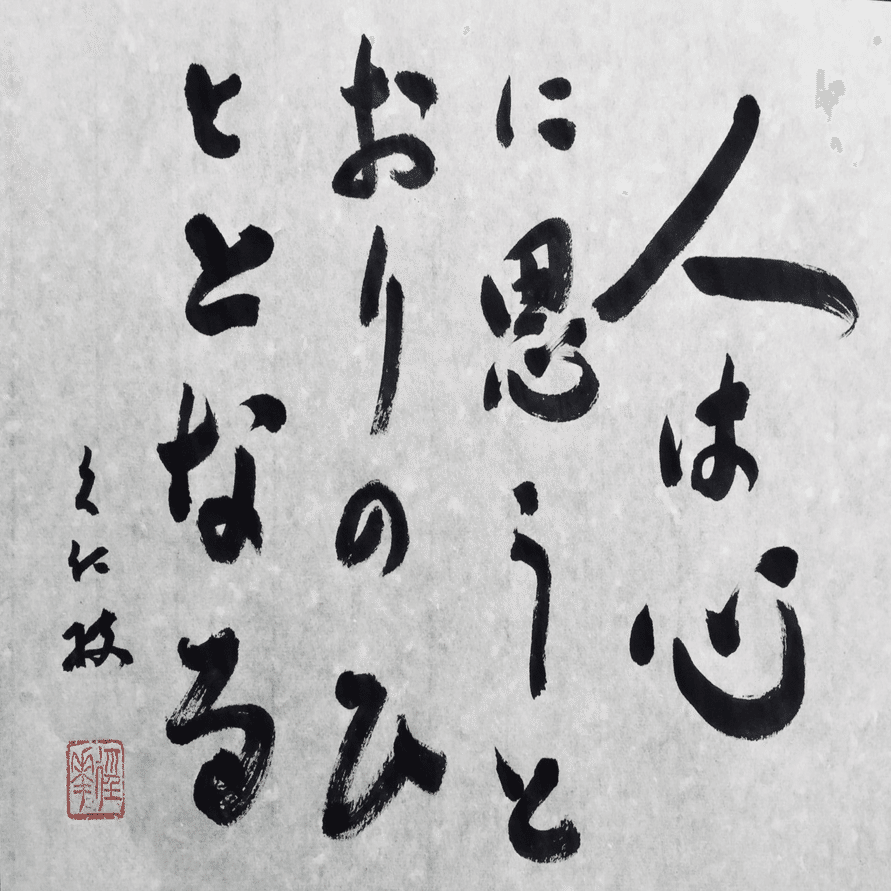 人は心
に思うと
おりのひ
ととなる
久仁枝